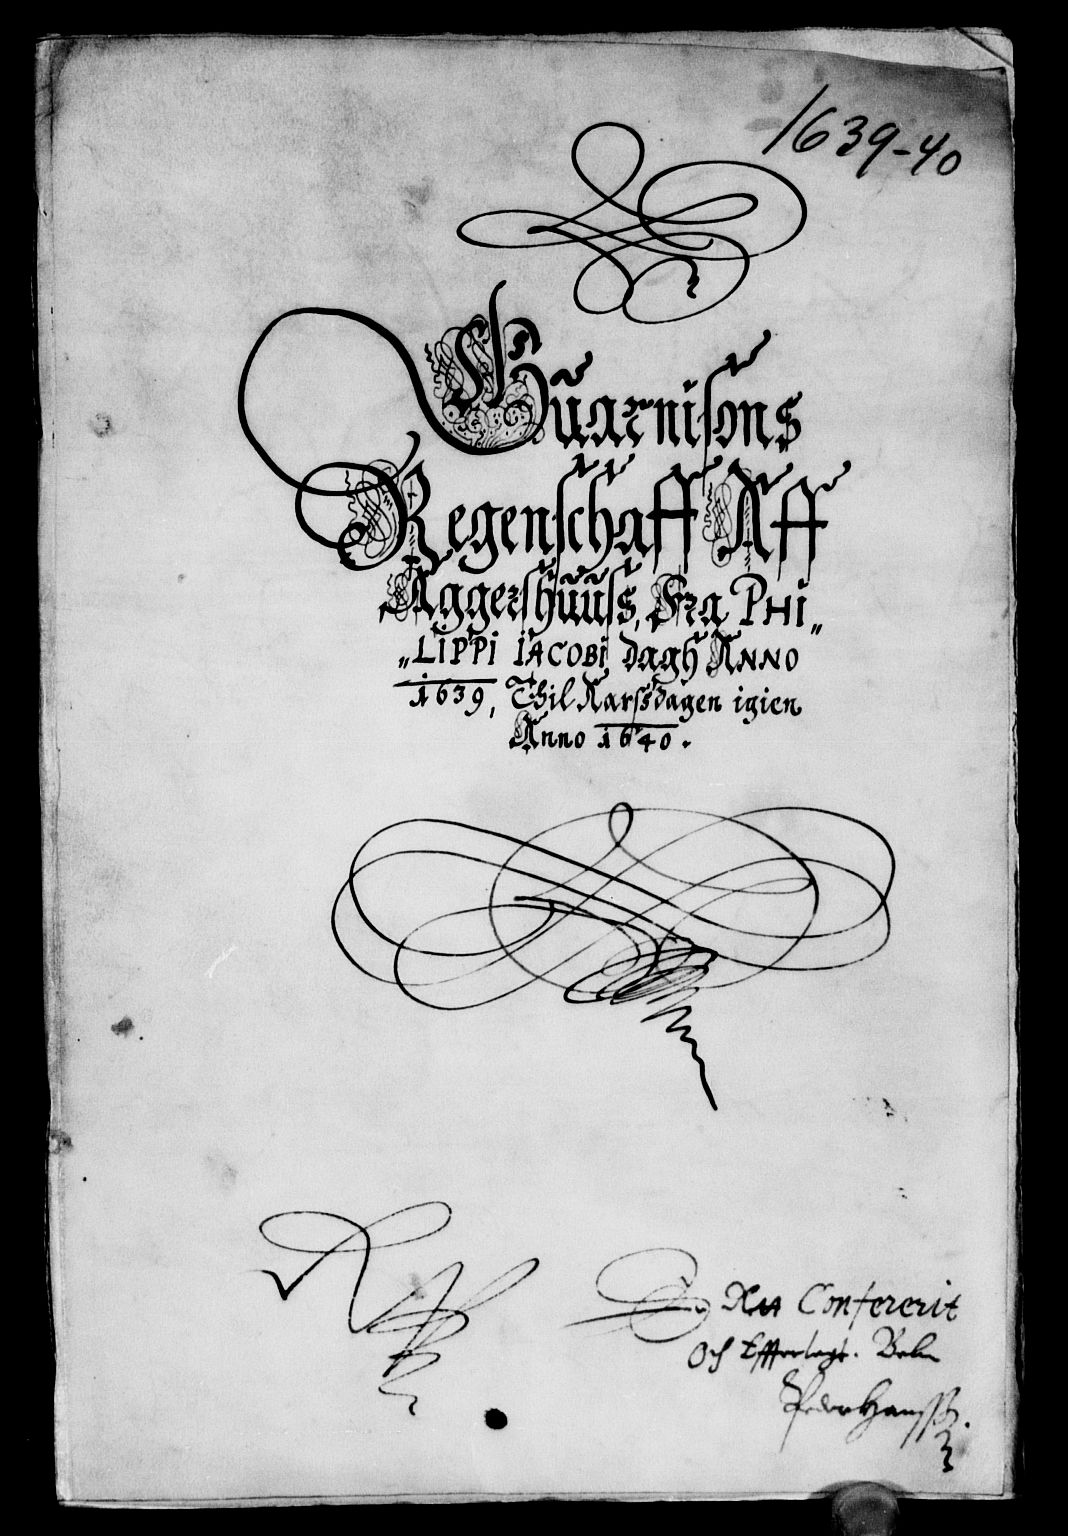 1639-40
Guarnisons
Regenschaff Aff
Aggershuuss, Fra PHI„
„LIPPI IACOBI dagh ANNO
1639, Thil Aarssdagen igien
Anno 1640.
Confererit
Och Efferlagt.
Peder Hanss